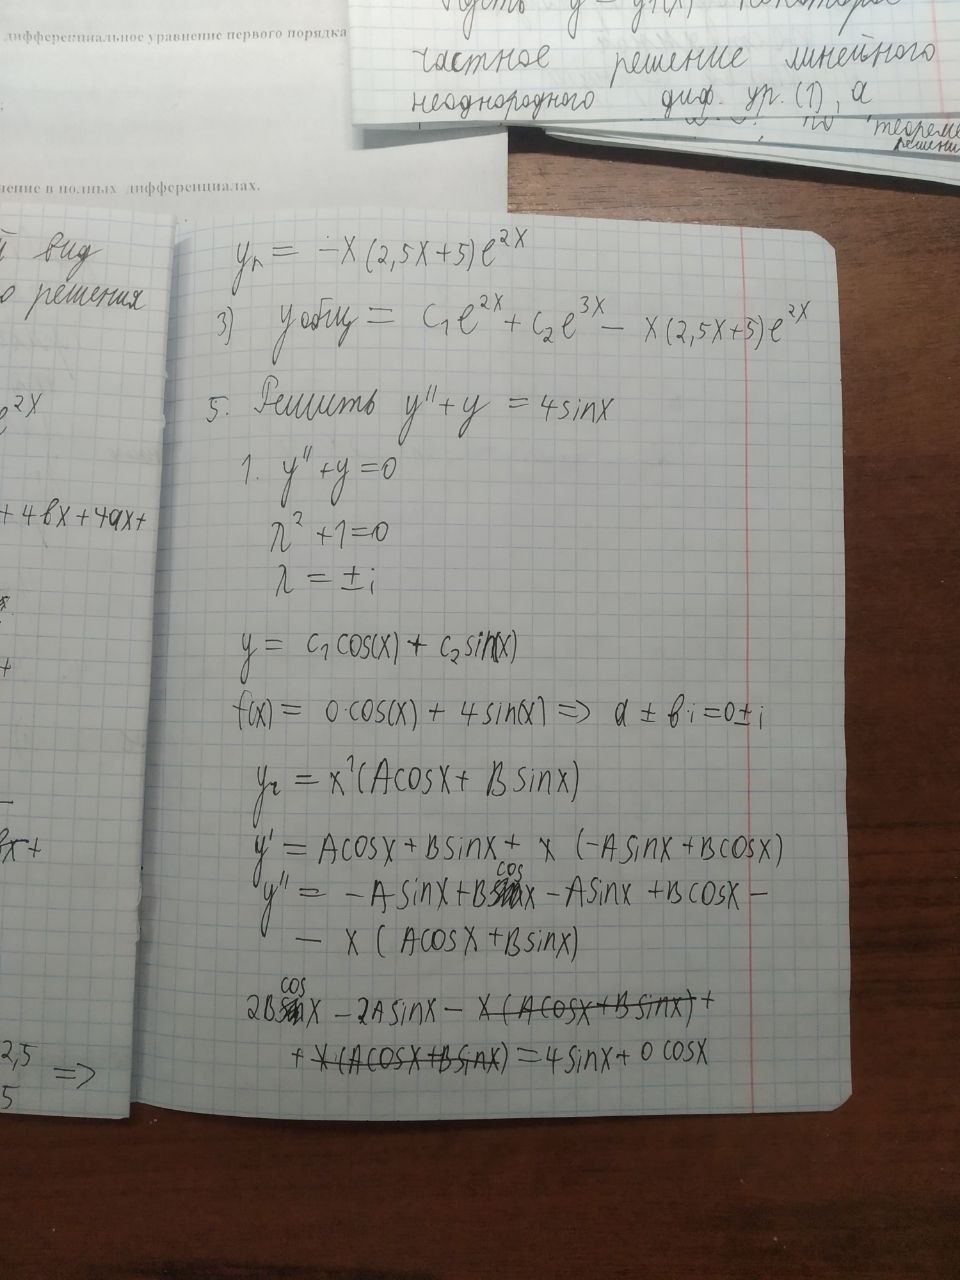 дифференциальное уравнение первого порядка
частное решение линейного
неоднородного диф. ур. (1), а
по теореме
решения
нение в полных дифференциалах.
й вид
о решения
e^2x
+ 4вx + 4ax +
+
вx +
2,5 =>
5
yч = -x (2,5x + 5) e^2x
3) yобщ = C₁e^2x + C₂e^3x - x (2,5x + 5) e^2x
5. Решить y'' + y = 4sinx
1. y'' + y = 0
λ² + 1 = 0
λ = ± i
y = C₁ cos(x) + C₂ sin(x)
f(x) = 0·cos(x) + 4 sin(x) => α ± вi = 0 ± i
yч = x¹ (A cosx + B sinx)
y' = A cosx + B sinx + x (-A sinx + B cosx)
y'' = -A sinx + B cos x - A sinx + B cosx -
- x (A cosx + B sinx)
2B cos x - 2A sinx - x (A cosx + B sinx) +
+ x (A cosx + B sinx) = 4 sinx + 0 cosx